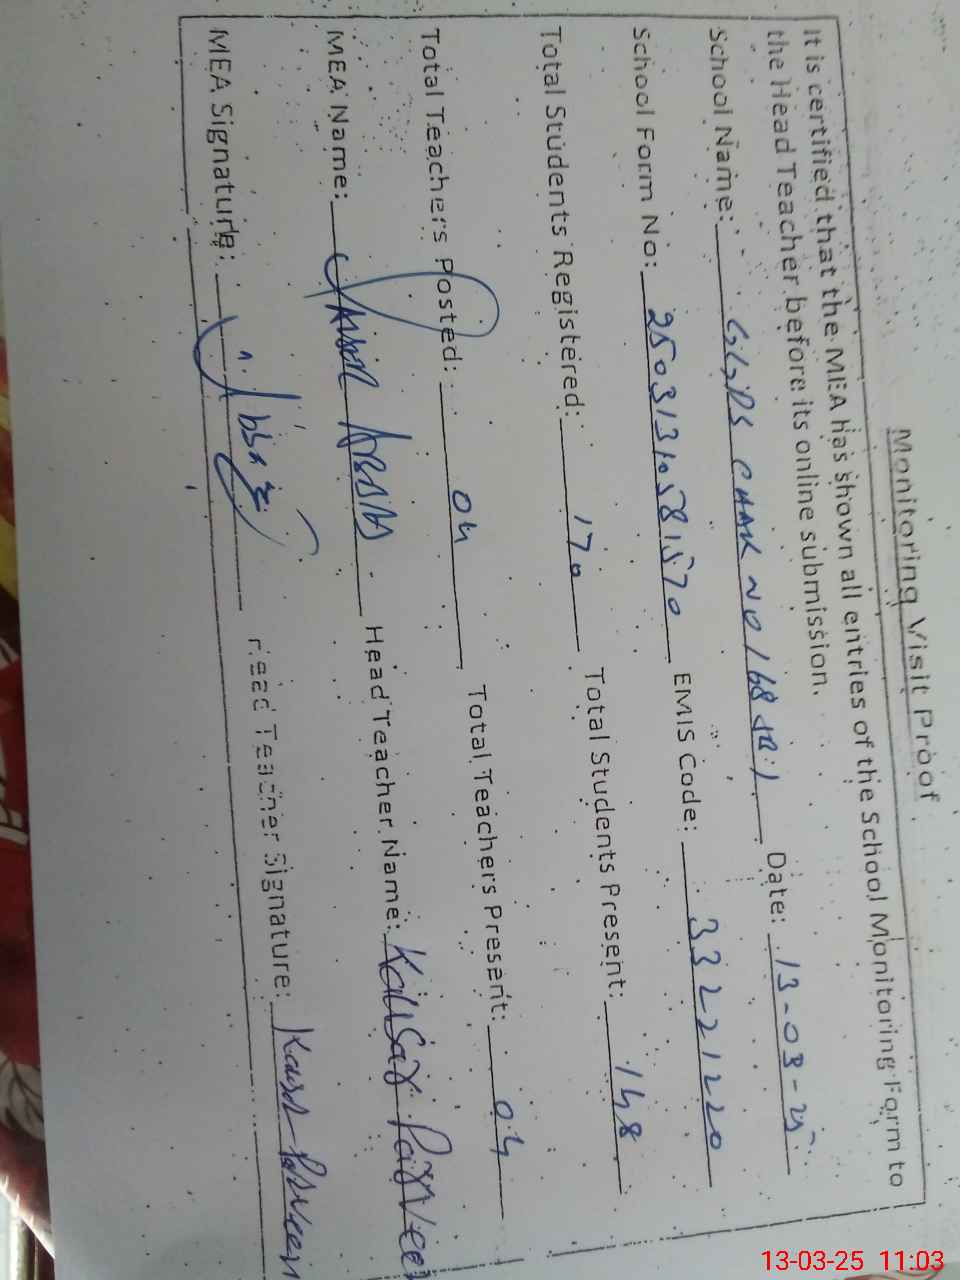 Monitoring Visit Proof
It is certified that the MEA has shown all entries of the School Monitoring Form to
the Head Teacher before its online submission.
School Name: GGPS CHAK NO 168 Date: 13-03-25
School Form No: 25031310581570 EMIS Code: 33221220
Total Students Registered: 170 Total Students Present: 148
Total Teachers Posted: 04 Total Teachers Present: 04
MEA Name: Head Teacher Name: Kausar Parveen
MEA Signature: Head Teacher Signature: Kausar Parveen
13-03-25 11:03